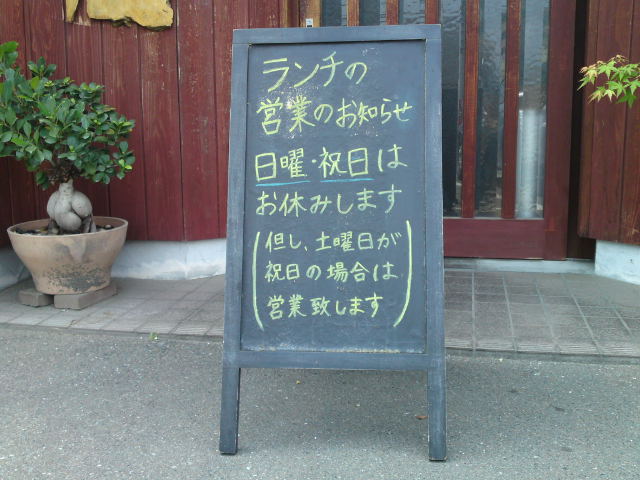 ランチの
営業のお知らせ
日曜・祝日は
お休みします
(但し、土曜日が
祝日の場合は
営業致します)